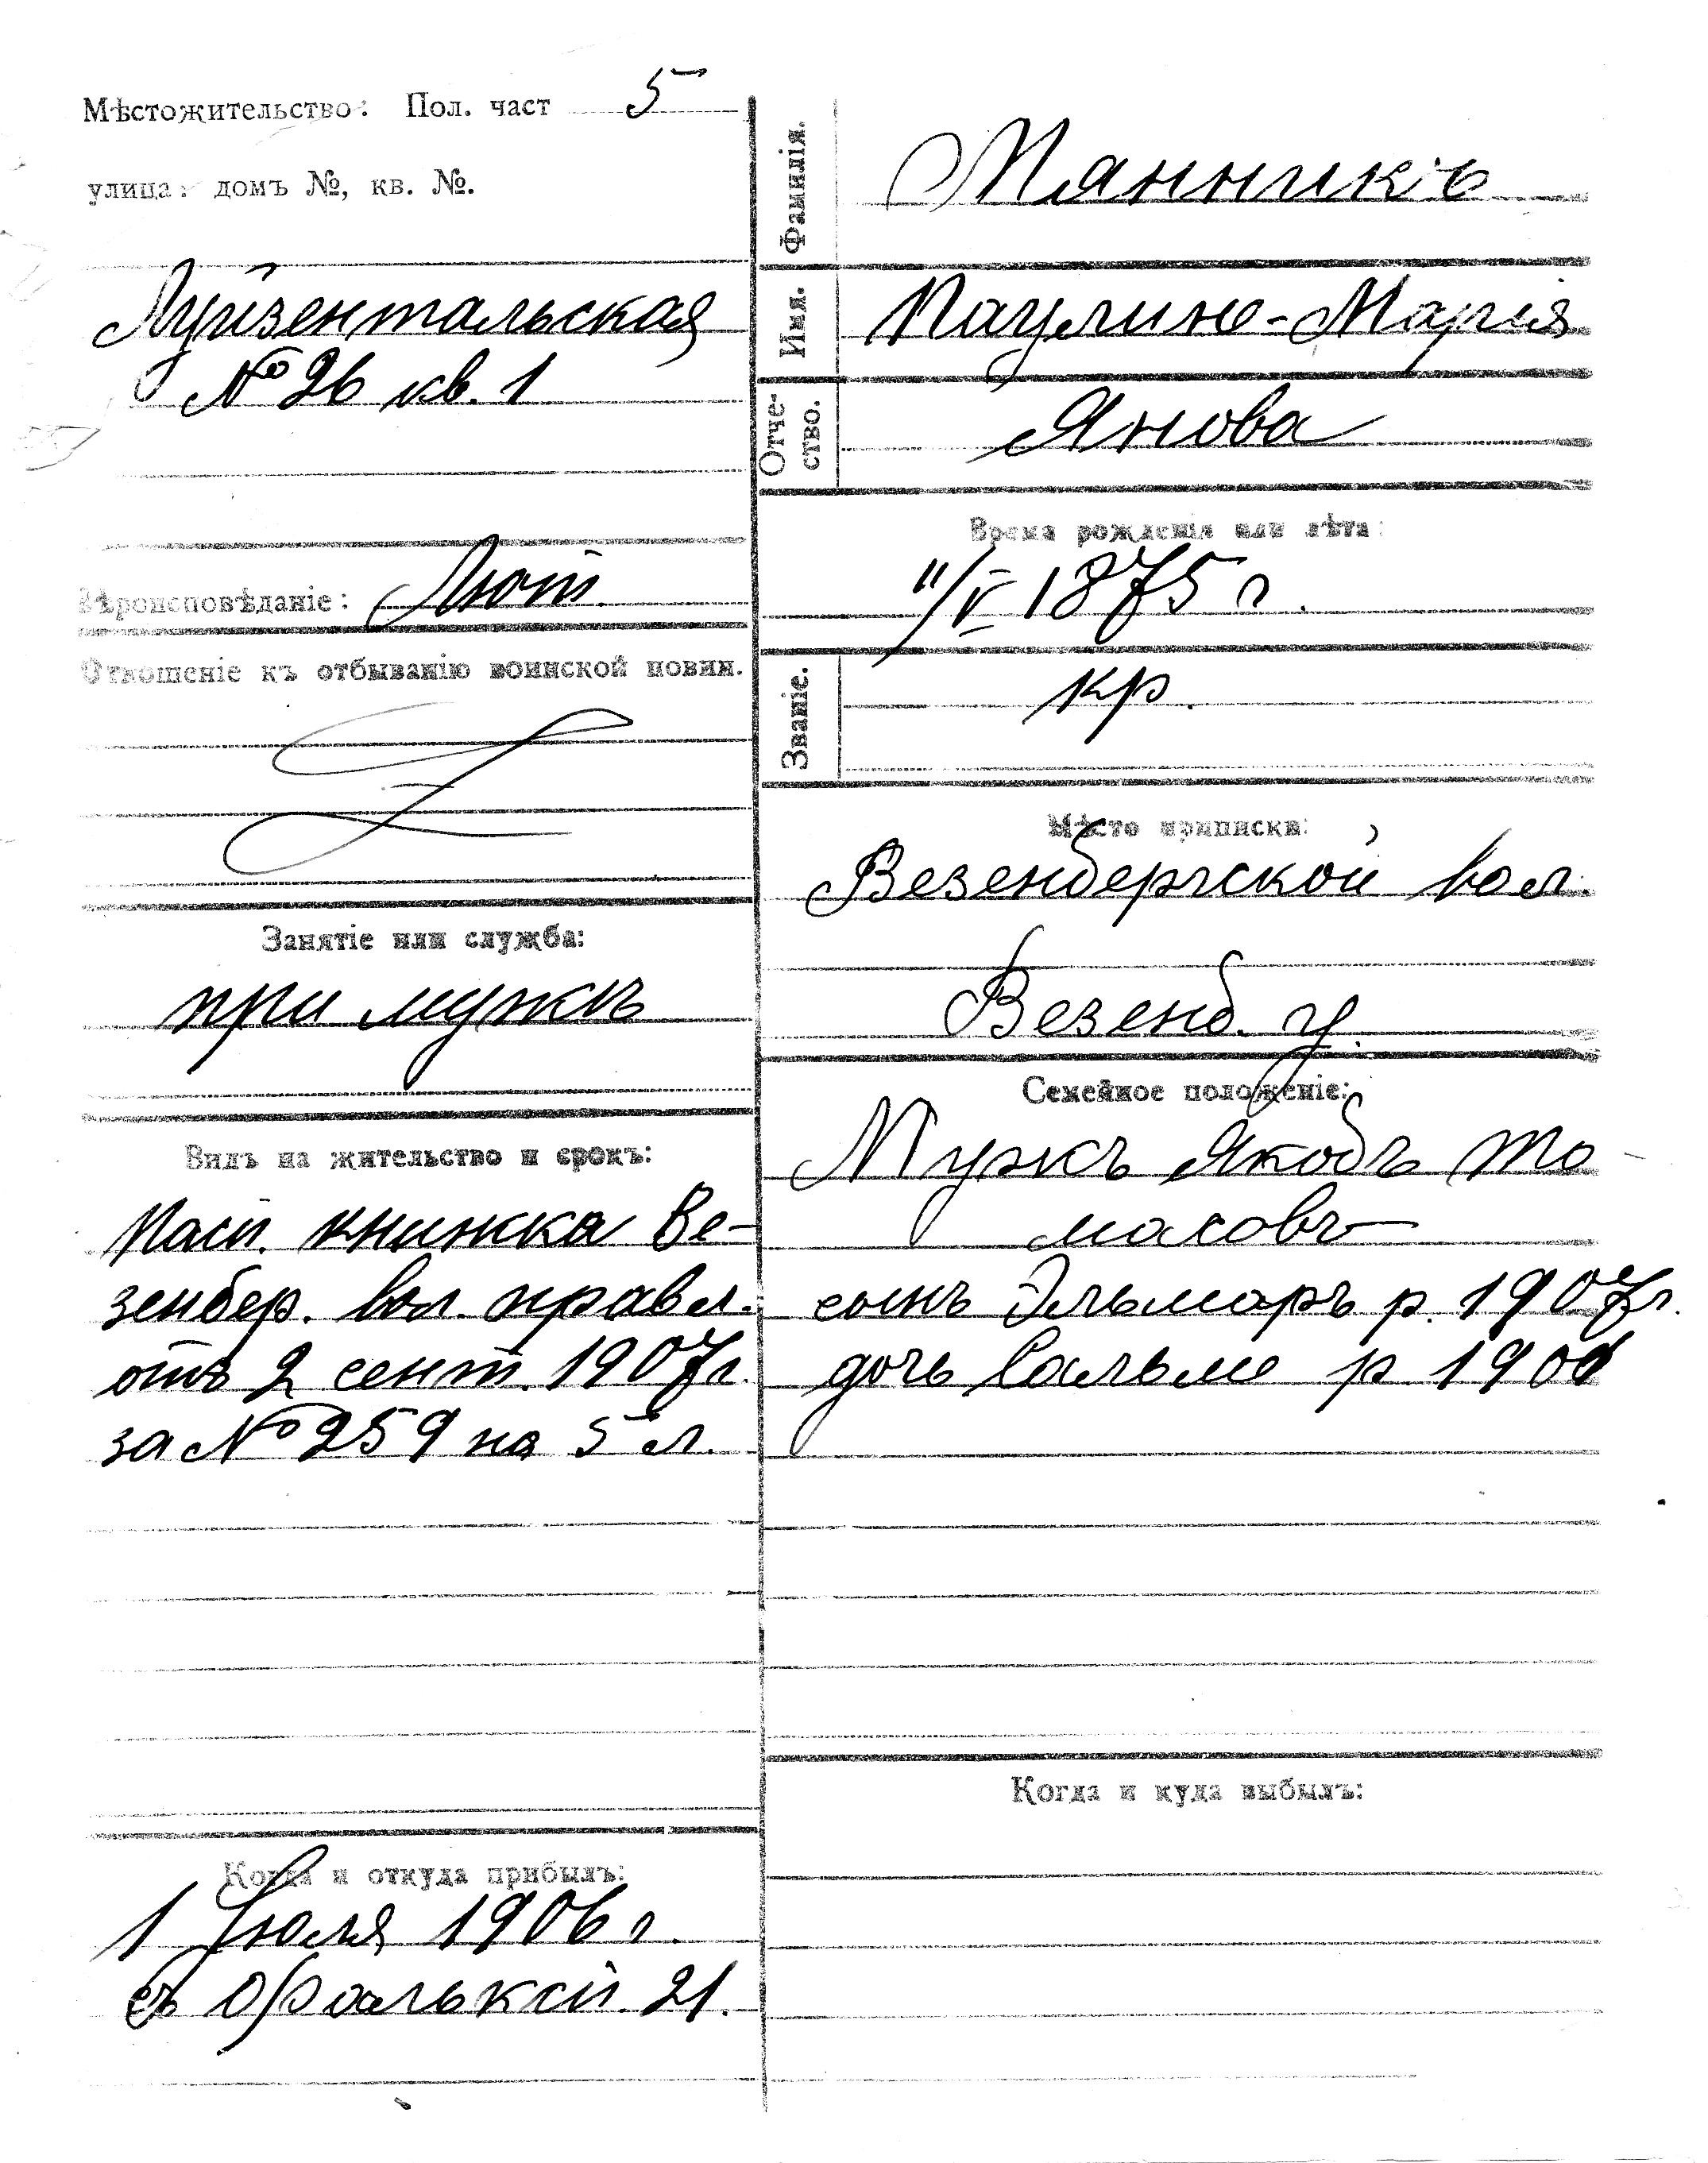 Мѣстожительство: Пол. част 5
улица: домъ №, кв. №.
Луизентальская
№ 26 кв. 1
Вѣроисповѣданіе: Лют.
Отношеніе къ отбыванію воинской повин.
Занятіе или служба:
при мужѣ
Видъ на жительство и срокъ:
Пасп. книжка Ве-
зенбер. вол. правл.
отъ 2 сент. 1907 г.
за № 259 на 5 л.
Когда и откуда прибылъ:
1 Іюля 1906 г.
съ Фальксп. 21.
Фамилія. Мянникъ
Имя. Паулине-Марія
Отче-
ство. Янова
Время рожденія или лѣта:
11/V 1875 г.
Званіе. кр.
Мѣсто приписки:
Везенбергской вол.
Везенб. у.
Семейное положеніе:
Мужъ Якобъ То-
масовъ
сынъ Эльмаръ р. 1907 г.
дочь Сальме р
Когда и куда выбылъ: